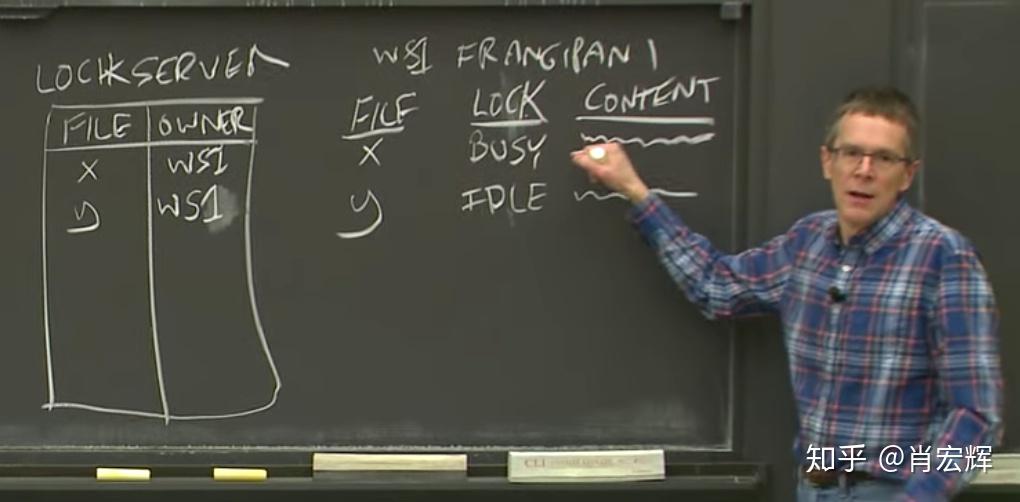 LOCKSERVER
FILE OWNER
X WS1
y WS1
WS1 FRANGIPANI
FILE LOCK CONTENT
X BUSY
y IDLE
CLI
知乎 @肖宏辉